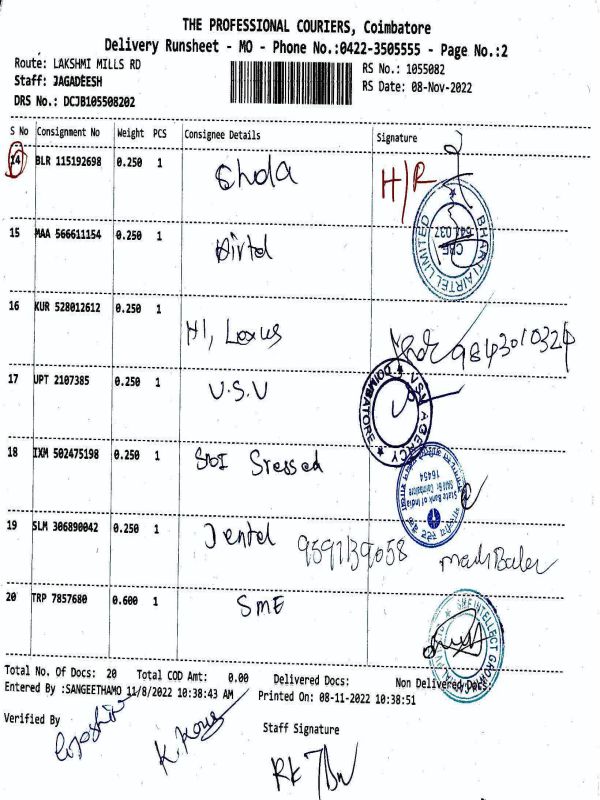 THE PROFESSIONAL COURIERS, Coimbatore
Delivery Runsheet - MO - Phone No.:0422-3505555 - Page No.:2
Route: LAKSHMI MILLS RD
RS No.: 1055082
Staff: JAGADEESH
RS Date: 08-Nov-2022
DRS No.: DCJB105508202
S No Consignment No Weight PCS Consignee Details Signature
14 BLR 115192698 0.250 1 H/R
15 MAA 566611154 0.250 1 Airtel
BHARTI AIRTEL LIMITED
CBE
641 037
16 KUR 528012612 0.250 1 HI, Lexus 9843010324
17 UPT 2107385 0.250 1 U.S.V
VSN AGENCY
COIMBATORE
18 IXM 502475198 0.250 1 SBI Sressed
State Bank of India
Coimbatore
16454
19 SLM 306890042 0.250 1 Dental 9591139058
20 TRP 7857680 0.600 1 SME
SME INTELLECT GROWTH
Total No. Of Docs: 20 Total COD Amt: 0.00 Delivered Docs: Non Delivered Docs:
Entered By :SANGEETHAMO 11/8/2022 10:38:43 AM Printed On: 08-11-2022 10:38:51
Verified By
Staff Signature